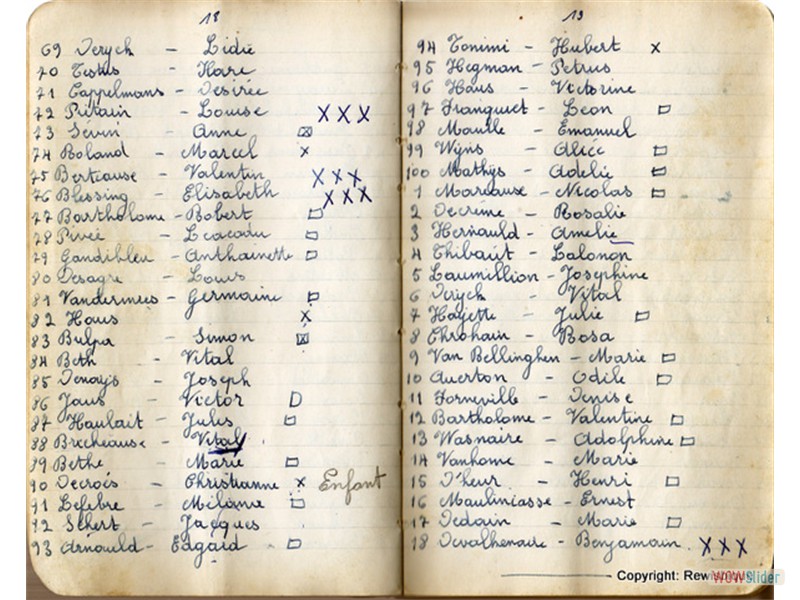 18
69 Deryck - Lidie
70 Testus - Hare
71 Cappelmans - Désirée
72 Putain - Louise XXX
73 Sevin - Anne ☒
74 Boland - Marcel x
75 Berteause - Valentin XXX
76 Blessing - Elisabeth XXX
77 Bartholome - Robert □
78 Pivée - □
79 Gandibleu - Anthainette □
80 Desagre - Louis
81 Vandermies - Germaine □
82 Haus x
83 Bulpa - Simon ☒
84 Beth - Vital
85 - Joseph
86 Jaus - Victor □
87 Haulait - Jules □
88 Bricheause - Vital
89 Bethe - Marie □
90 Decrois - Christianne x Enfant
91 Lefebre - Mélanie □
92 Schert - Jacques
93 Arnould - Edgard □
19
94 Tonimi - Hubert x
95 Hegman - Petrus
96 Haus - Victorine
97 Franquet - Leon □
98 Maulle - Emanuel
99 Wyns - Alice □
100 Mathÿs - Adelie □
1 Mareause - Nicolas □
2 Decrème - Rosalie
3 Hernauld - Amelie
4 Thibaut - Lalonon
5 Laumillion - Josephine
6 Deryck - Vital
7 Hayette - Julie □
8 Ehrohain - Rosa
9 Van Bellinghen - Marie □
10 Querton - Odile □
11 Forneville - Denise
12 Bartholome - Valentine □
13 Wasnaire - Adolphine □
14 Vanhome - Marie
15 D'heur - Henri □
16 Mauliniasse - Ernest
17 Dedain - Marie □
18 Devalhenaire - Benjamain XXX
Copyright:
WOWSlider